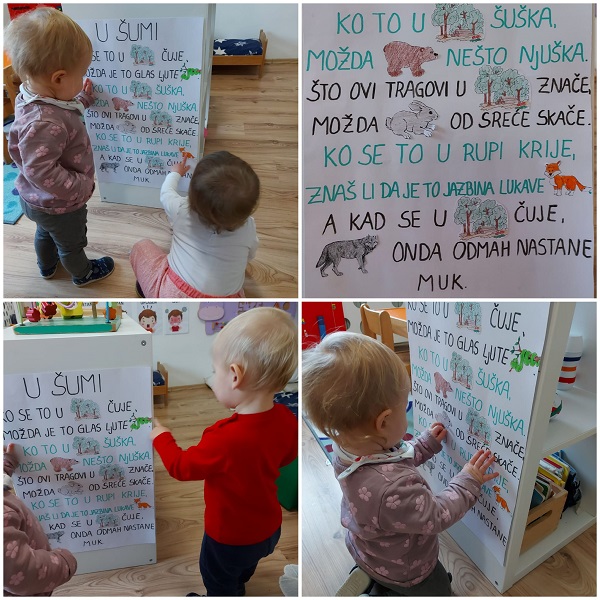 U ŠUMI
SE TO U ČUJE,
OŽDA JE TO GLAS LJUTE
KO TO U ŠUŠKA,
MOŽDA NEŠTO NjUŠKA.
ŠTO OVI TRAGOVI U ZNAČE,
MOŽDA OD SREĆE SKAČE.
KO SE TO U RUPI KRIJE,
ZNAŠ LI DA JE TO JAZBINA LUKAVE
A KAD SE U ČUJE,
ONDA ODMAH NASTANE
MUK.
KO TO U ŠUŠKA,
MOŽDA NEŠTO NjUŠKA.
ŠTO OVI TRAGOVI U ZNAČE,
MOŽDA OD SREĆE SKAČE.
KO SE TO U RUPI KRIJE,
ZNAŠ LI DA JE TO JAZBINA LUKAVE
A KAD SE U ČUJE,
ONDA ODMAH NASTANE
MUK.
U ŠUMI
KO SE TO U ČUJE,
MOŽDA JE TO GLAS LJUTE
KO TO U ŠUŠKA,
MOŽDA NEŠTO NjUŠKA.
ŠTO OVI TRAGOVI U ZNAČE,
MOŽDA OD SREĆE SKAČE.
KO SE TO U RUPI KRIJE,
ZNAŠ LI DA JE TO JAZBINA LUKAVE
KAD SE U ČUJE,
ONDA ODMAH NASTANE
MUK.
KO SE TO U ČUJE,
MOŽDA JE TO GLAS LJUTE
KO TO U ŠUŠKA,
MOŽDA NEŠTO NjUŠKA.
ŠTO OVI TRAGOVI U ZNAČE,
OD SREĆE SKAČE.
NASTANE